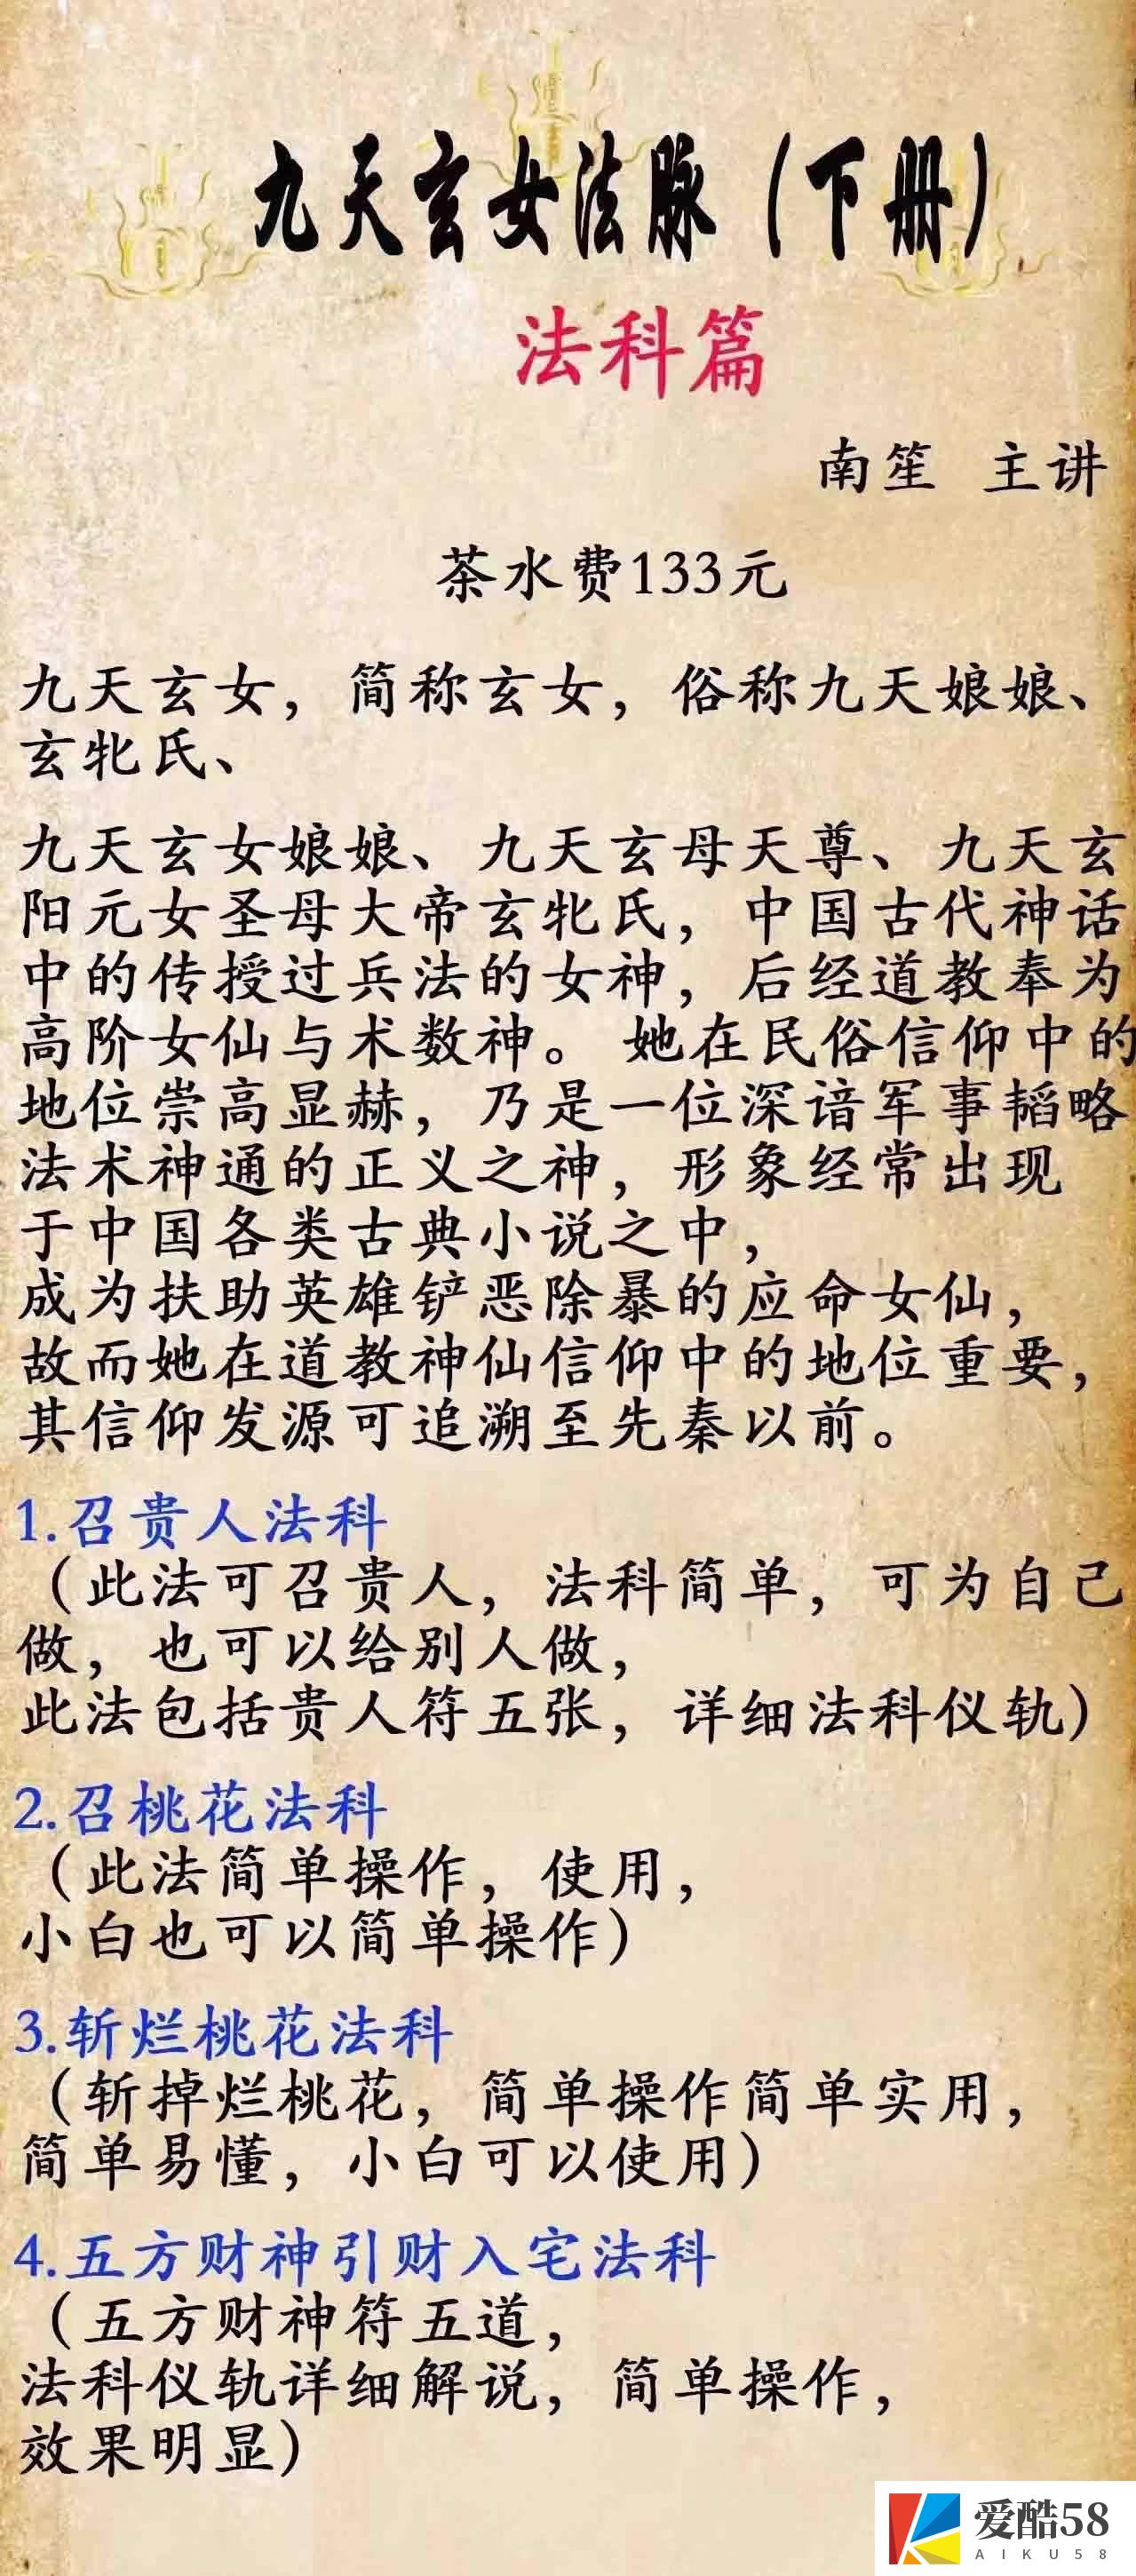 九天玄女法脉（下册）
法科篇
南笙 主讲
茶水费133元
九天玄女，简称玄女，俗称九天娘娘、
玄牝氏、
九天玄女娘娘、九天玄母天尊、九天玄
阳元女圣母大帝玄牝氏，中国古代神话
中的传授过兵法的女神，后经道教奉为
高阶女仙与术数神。她在民俗信仰中的
地位崇高显赫，乃是一位深谙军事韬略
法术神通的正义之神，形象经常出现
于中国各类古典小说之中，
成为扶助英雄铲恶除暴的应命女仙，
故而她在道教神仙信仰中的地位重要，
其信仰发源可追溯至先秦以前。
1.召贵人法科
（此法可召贵人，法科简单，可为自己
做，也可以给别人做，
此法包括贵人符五张，详细法科仪轨）
2.召桃花法科
（此法简单操作，使用，
小白也可以简单操作）
3.斩烂桃花法科
（斩掉烂桃花，简单操作简单实用，
简单易懂，小白可以使用）
4.五方财神引财入宅法科
（五方财神符五道，
法科仪轨详细解说，简单操作，
效果明显）
爱酷58
AIKU58